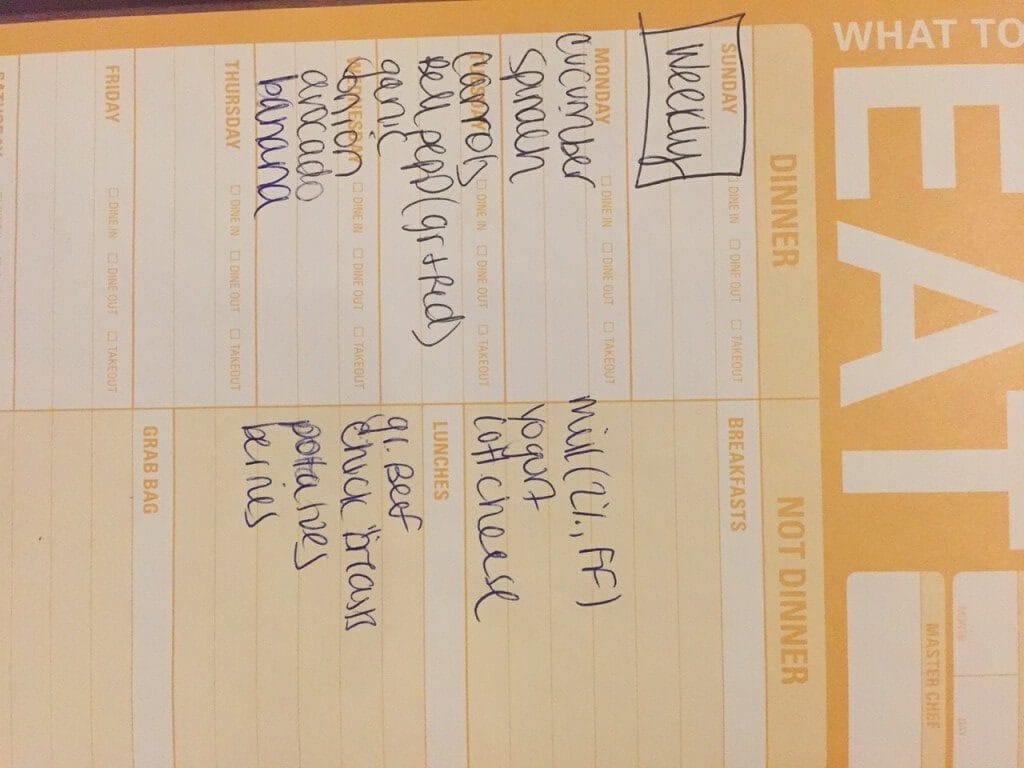 WHAT TO
EAT
MASTER CHEF
DAY
DINNER
SUNDAY
DINE IN DINE OUT TAKEOUT
Weekly
MONDAY
DINE IN DINE OUT TAKEOUT
cucumber
spinach
TUESDAY
DINE IN DINE OUT TAKEOUT
carrots
Bell pepp (gr + red)
garlic
WEDNESDAY
DINE IN DINE OUT TAKEOUT
onion
avocado
banana
THURSDAY
DINE IN DINE OUT TAKEOUT
FRIDAY
DINE IN DINE OUT TAKEOUT
SATURDAY
NOT DINNER
BREAKFASTS
milk (2%, FF)
yogurt
cott cheese
LUNCHES
gr. Beef
chick breast
potatoes
berries
GRAB BAG